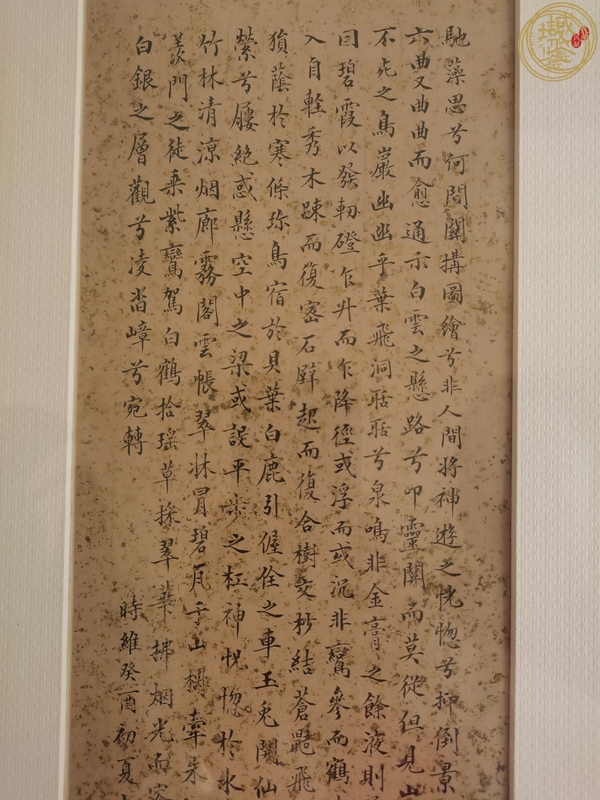 馳藻思兮何間關搆圖繪兮非人間將神遊之恍惚兮抑倒景
六曲又曲曲而愈通示白雲之懸路兮叩靈關而莫從但見山
不死之鳥巖幽幽乎葉飛洞聒聒兮泉鳴非金膏之餘液則
囙碧霞以發軔磴乍升而乍降徑或浮而或沉非鸞參而鶴
入自輕秀木踈而復密石壁起而復合樹交杪結蒼鼯飛
猿蔭於寒條珍鳥宿於貝葉白鹿引偓佺之車玉兎閑仙
縈兮屢絕惑懸空中之梁或誤平步之杠神恍惚於水
竹林清涼烟廊霧閣雲帳翠牀冒碧瓦乎山椒牽朱
羨門之徒乘紫鸞駕白鶴拾瑤草採翠華拂烟光而容
白銀之層觀兮凌沓嶂兮宛轉
時維癸酉初夏